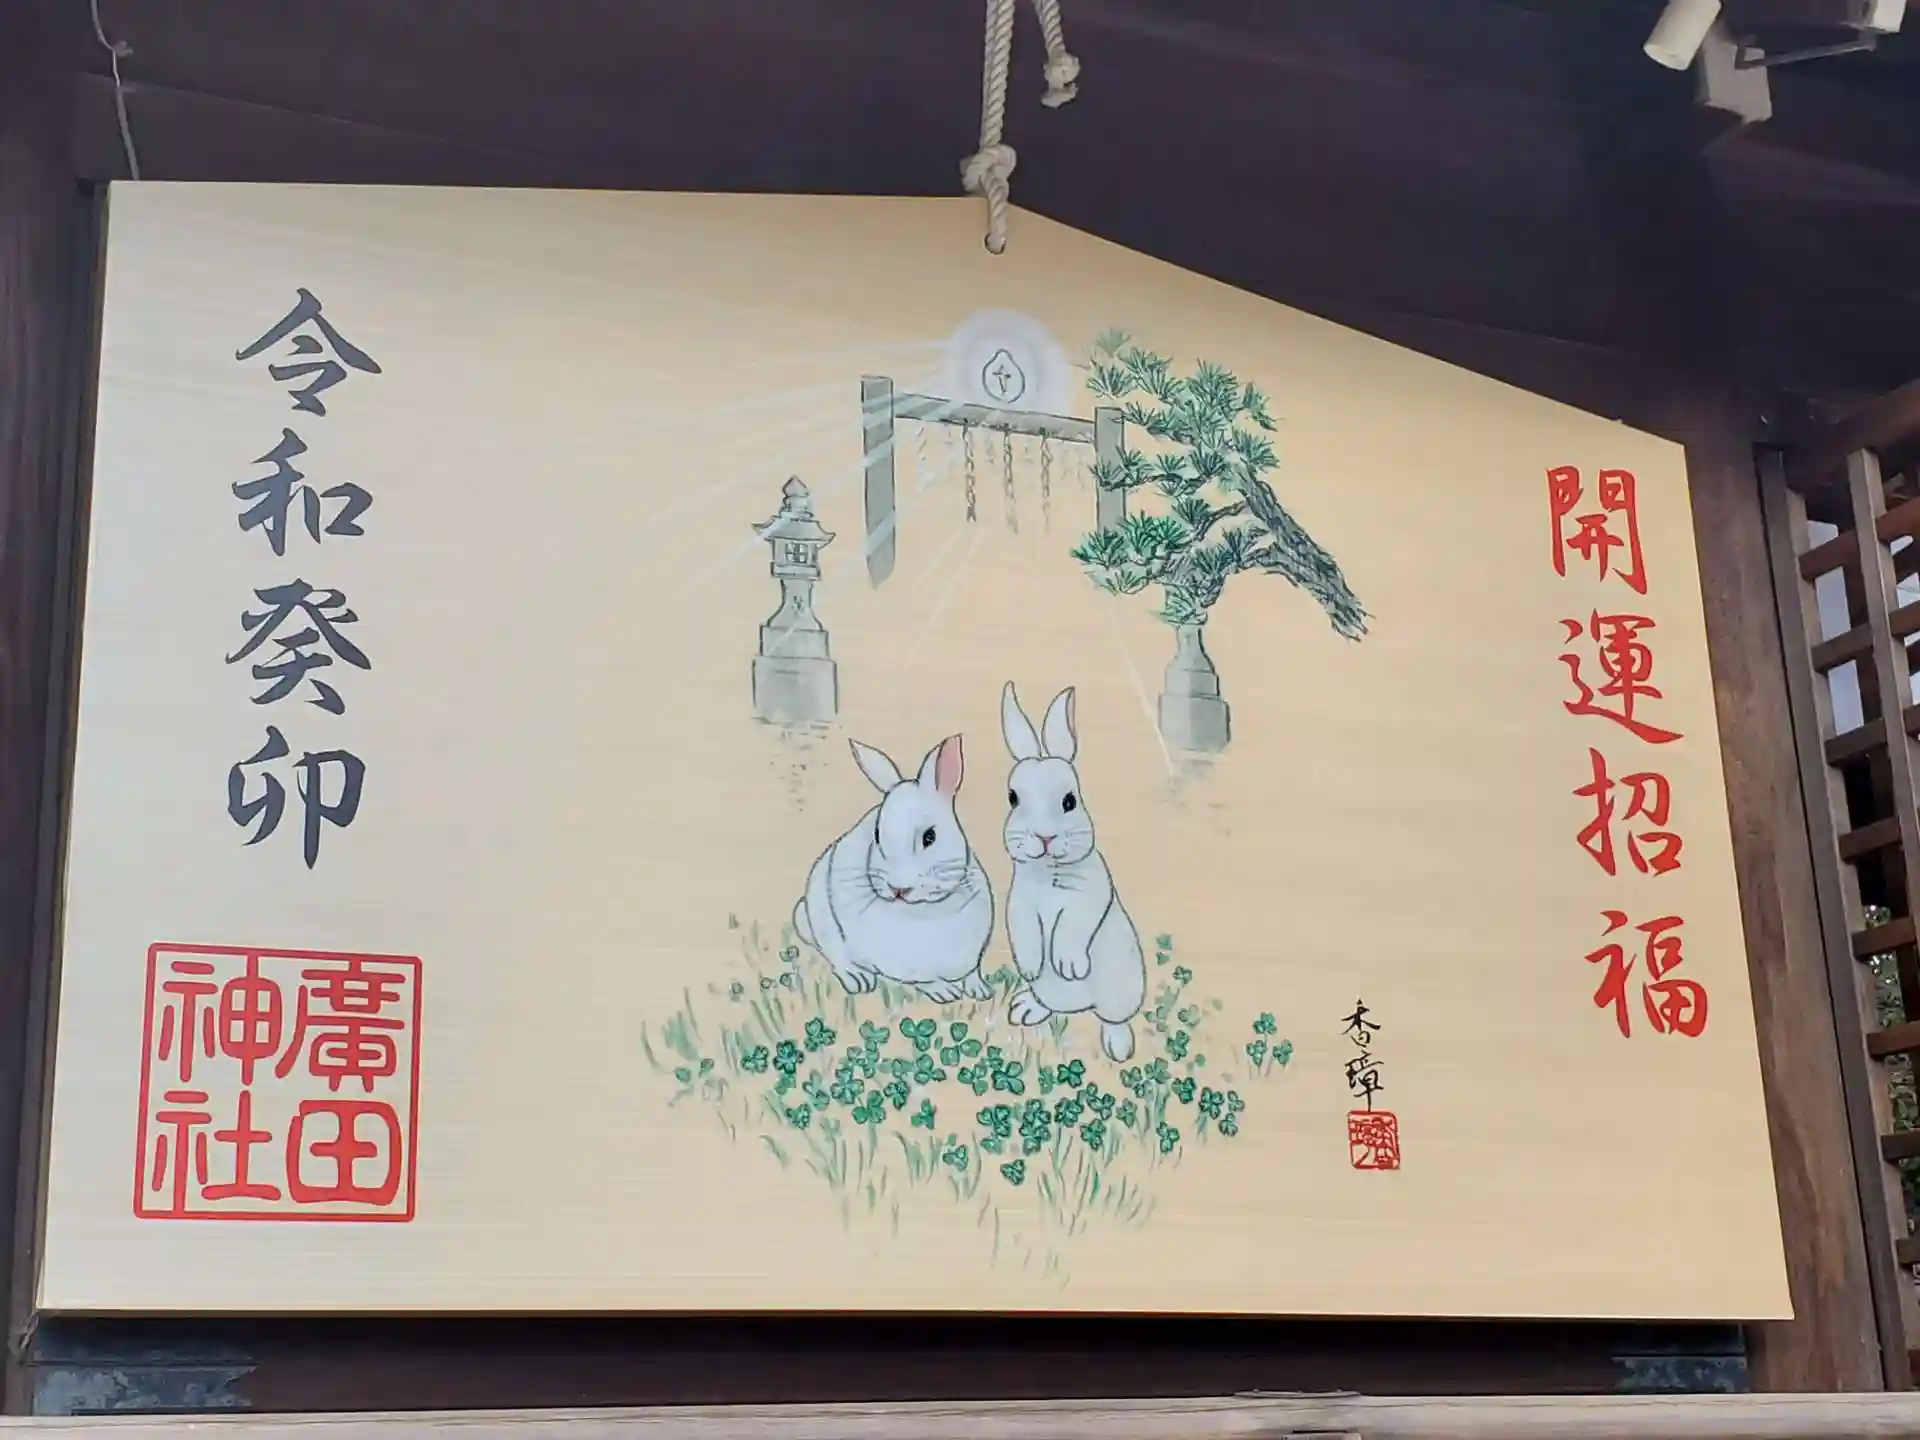 開運招福
香璋
令和癸卯
廣田
神社